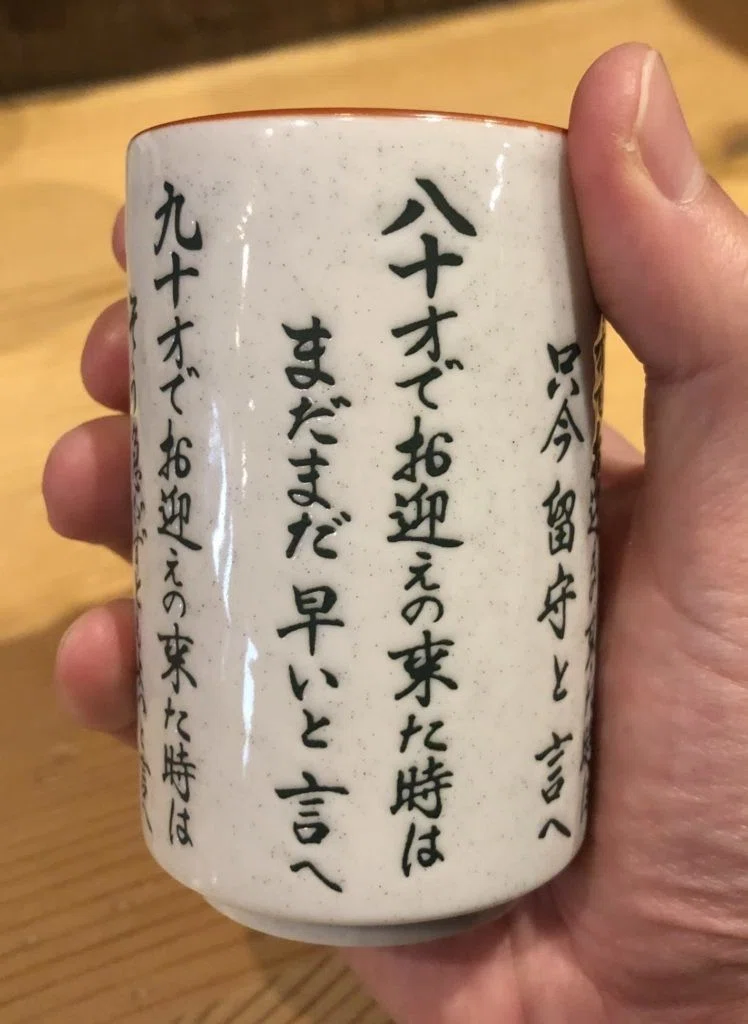 只今留守と言へ
八十才でお迎えの来た時は
まだまだ早いと言へ
九十才でお迎えの来た時は